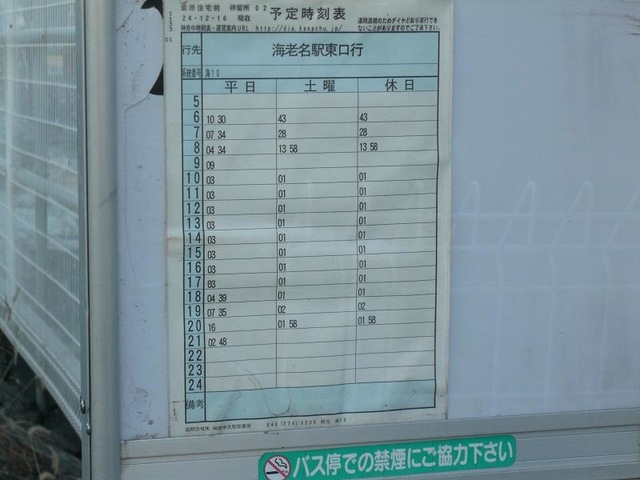 住宅前 停留所 02 予定時刻表
24・12・16 現在
時刻表・運賃案内URL http://dia.kanachu.jp/
道路混雑のためダイヤどおり運行でき
ないことがありますのでご了承下さい
行先 海老名駅東口行
系統番号 海10
平日 土曜 休日
5
6 10 30 43 43
7 07 34 28 28
8 04 34 13 58 13 58
9 09
10 03 01 01
11 03 01 01
12 03 01 01
13 03 01 01
14 03 01 01
15 03 01 01
16 03 01 01
17 03 01 01
18 04 39 01 01
19 07 35 02 02
20 16 01 58 01 58
21 02 48
22
23
24
備考
バス停での禁煙にご協力下さい